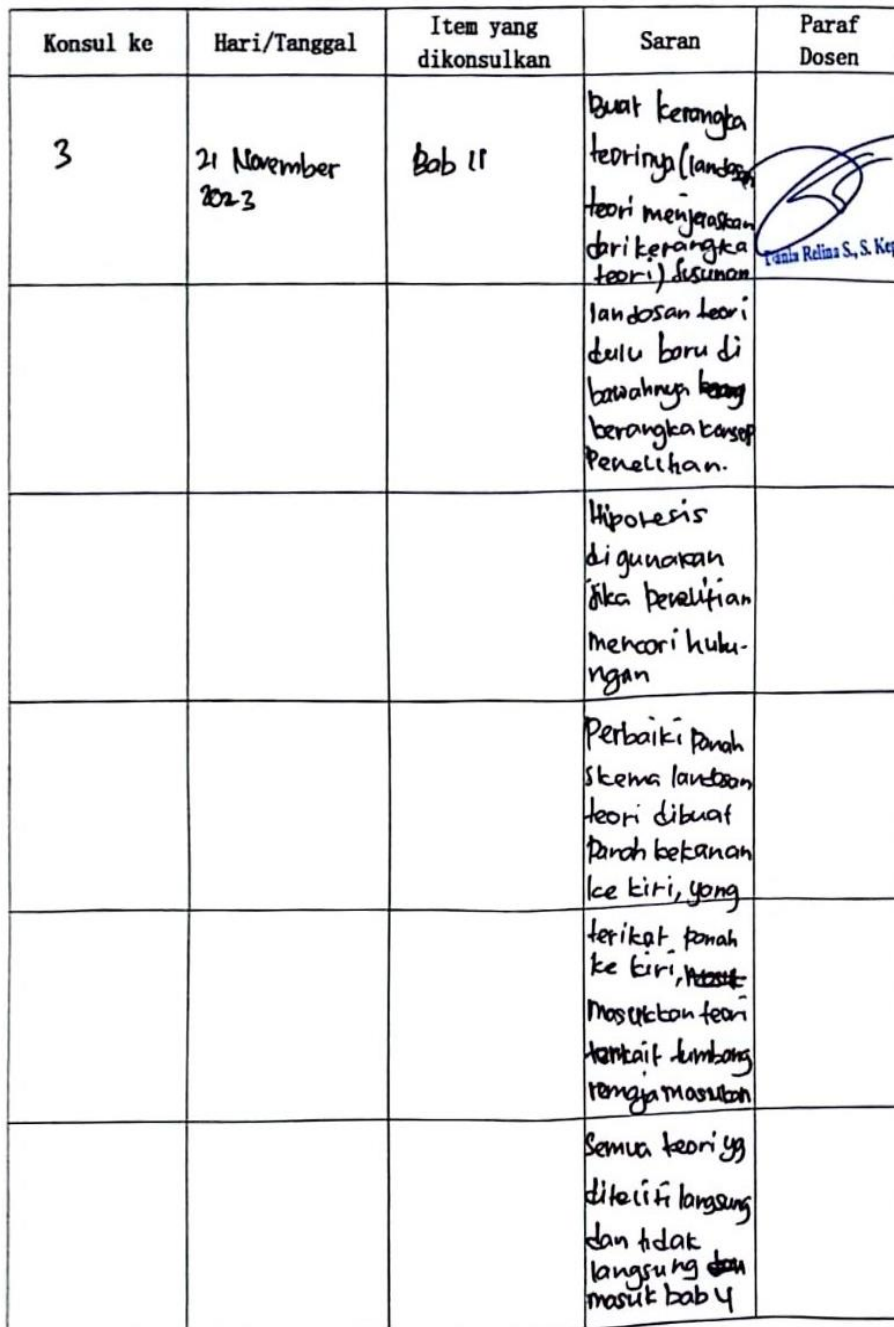 Konsul ke
Hari/Tanggal
Item yang
dikonsulkan
Saran
Paraf
Dosen
3
21 November
2023
Bab II
Buat kerangka
teorinya (landasan
teori menjelaskan
dari kerangka
teori) susunan
Relina S., S. Kep
landasan teori
dulu baru di
bawahnya
berangka konsep
Penelitian.
Hipotesis
digunakan
jika penelitian
mencari hubu-
ngan
Perbaiki panah
skema landasan
teori dibuat
Panah kekanan
ke kiri, yang
terikat panah
ke kiri,
masukkan teori
terkait tumbang
remaja masukan
Semua teori yg
diteliti langsung
dan tidak
langsung
masuk bab 4